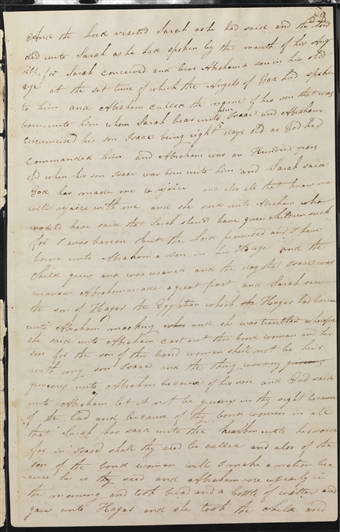 And the Lord visited Sarah as he had said and the Lord
did unto Sarah as he had spoken by the mouth of his Ang
els for Sarah conceived and bear Abraham a son in his old
age at the set time of which the angels of God had spoken
to him and Abraham called the name of his son that was
born unto him whom Sarah bear unto him Isaac and Abraham
circumcised his son Isaac being eight days old as God had
commanded him and Abraham was an Hundred years
old when his son Isaac was born unto him and Sarah said
God has made me to rejoice and also all that know me
will rejoice with me and she said unto Abraham who
would have said that Sarah should have given children suck
for I was barren but the Lord promised and I have
borne unto Abraham a son in his old age and the
child grew and was weaned and the day that Isaac was
weaned Abraham made a great feast and Sarah saw
the son of Hagar the Egyptian which Hagar had borne
unto Abraham mocking and she was troubled wherefore
she said unto Abraham cast out this bond woman and her
son for the son of this bond woman shall not be heir
with my son Isaac and this thing was very
grievous unto Abraham because of his son and God said
unto Abraham let it not be grievous in thy sight because
of the lad and because of the bond woman in all
that Sarah has said unto thee hearken unto her voice
for in Isaac shall thy seed be called and also of the
son of the bond woman will I make a nation be
cause he is thy seed and Abraham rose up early in
the morning and took bread and a bottle of water and
gave unto Hagar and she took the child and